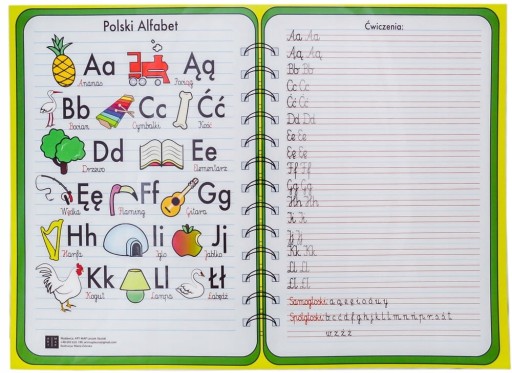 Polski Alfabet
Aa Ąą
Ananas Pociąg
Bb Cc Ćć
Bocian Cymbałki Kość
Dd Ee
Drzewo Elementarz
Ęę Ff Gg
Wędka Flaming Gitara
Hh Ii Jj
Harfa Iglo Jabłko
Kk Ll Łł
Kogut Lampa Łabędź
Ćwiczenia:
Aa Aa
Ąą Ąą
Bb Bb
Cc Cc
Ćć Ćć
Dd Dd
Ee Ee
Ęę Ęę
Ff Ff
Gg Gg
Hh Hh
Kk Kk
Samogłoski: a ą e ę i o ó u y
Spółgłoski: b c ć d f g h j k l ł m n ń p r s ś t
w z ź ż